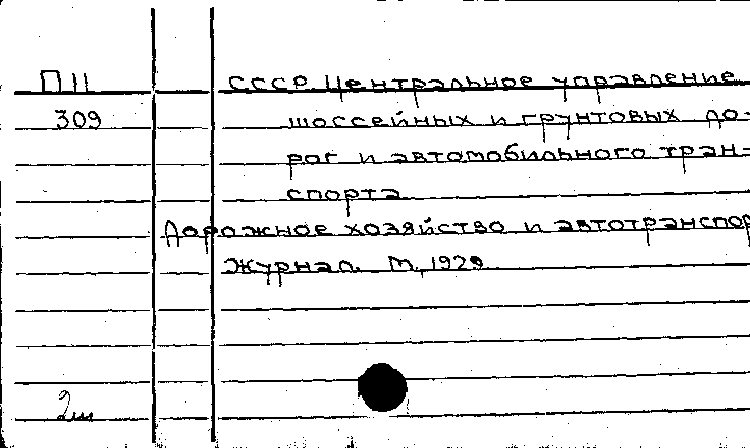 П11 СССР Центральное управление
309 шоссейных и грунтовых до-
рог и автомобильного тран-
спорта
Дорожное хозяйство и автотранспор
Журнал. М., 1929
2ш